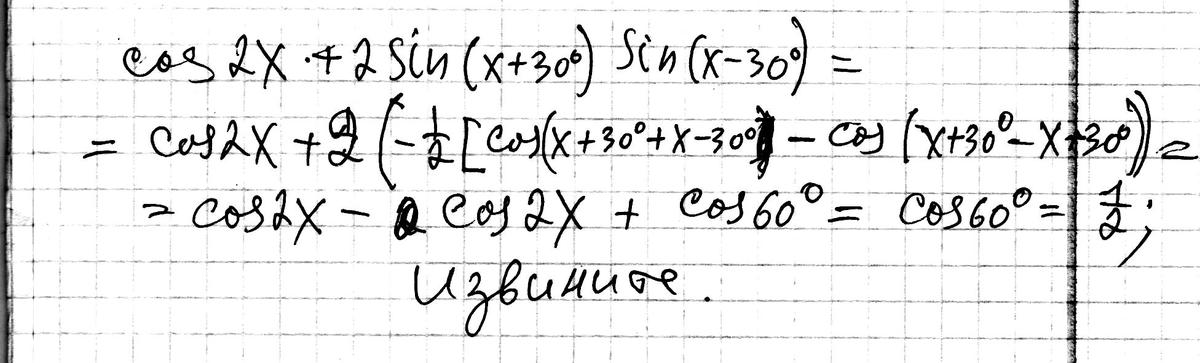 cos 2x + 2 sin (x+30°) sin (x-30°) =
= cos2x + 2 (-½ [cos(x+30°+x-30°) - cos (x+30°-x+30°)) =
= cos2x - cos 2x + cos60° = cos60° = ½;
Извините.